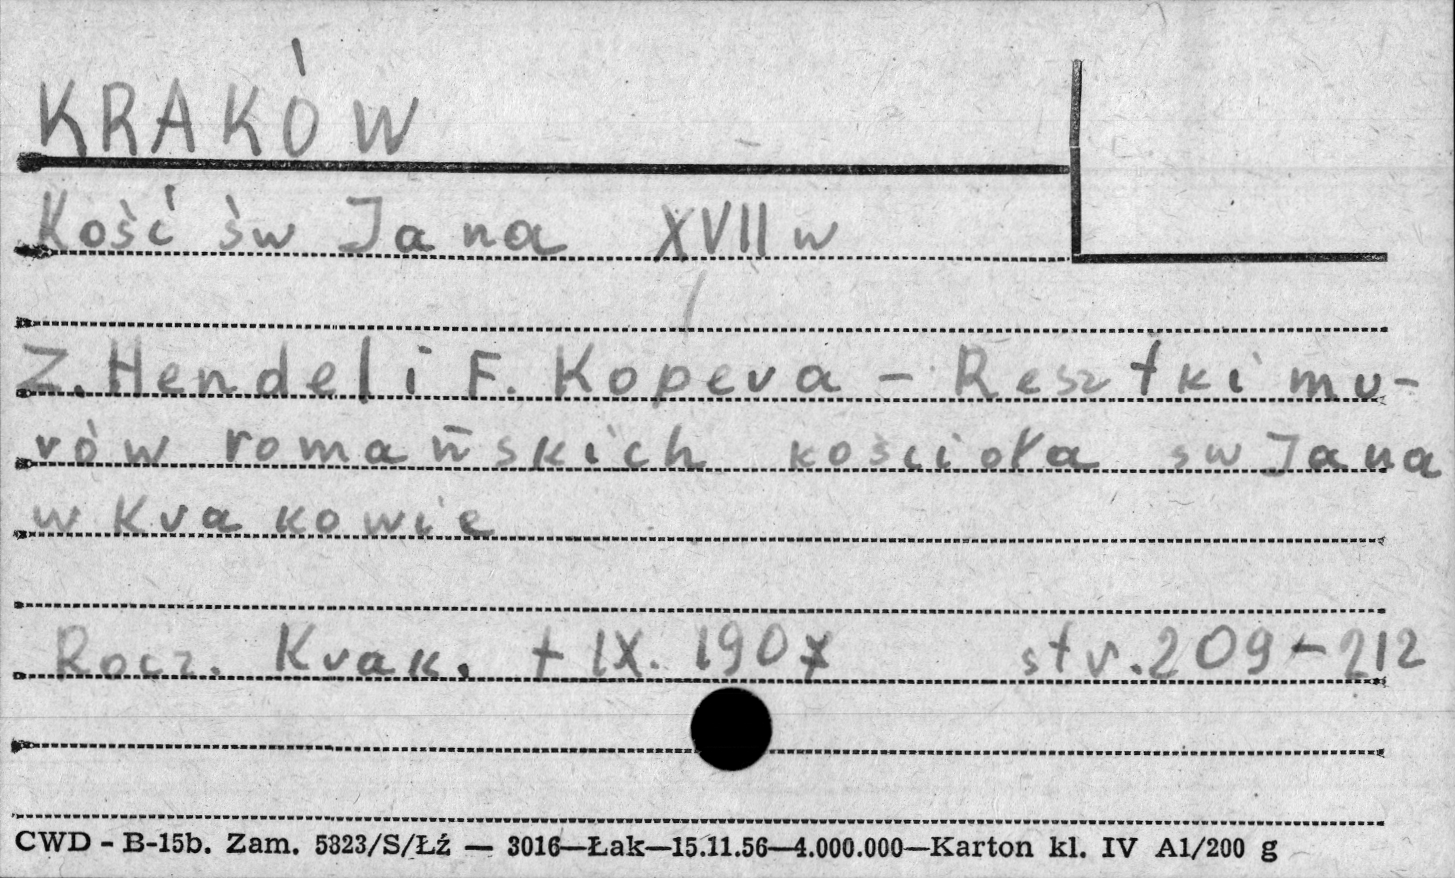 KRAKÓW
Kość św Jana XVII w
Z. Hendel i F. Kopera - Resztki mu-
rów romańskich kościoła sw Jana
w Krakowie
Rocz. Krak. t IX. 1907 str. 209-212
CWD - B-15b. Zam. 5823/S/Łź — 3016—Łak—15.11.56—4.000.000—Karton kl. IV A1/200 g